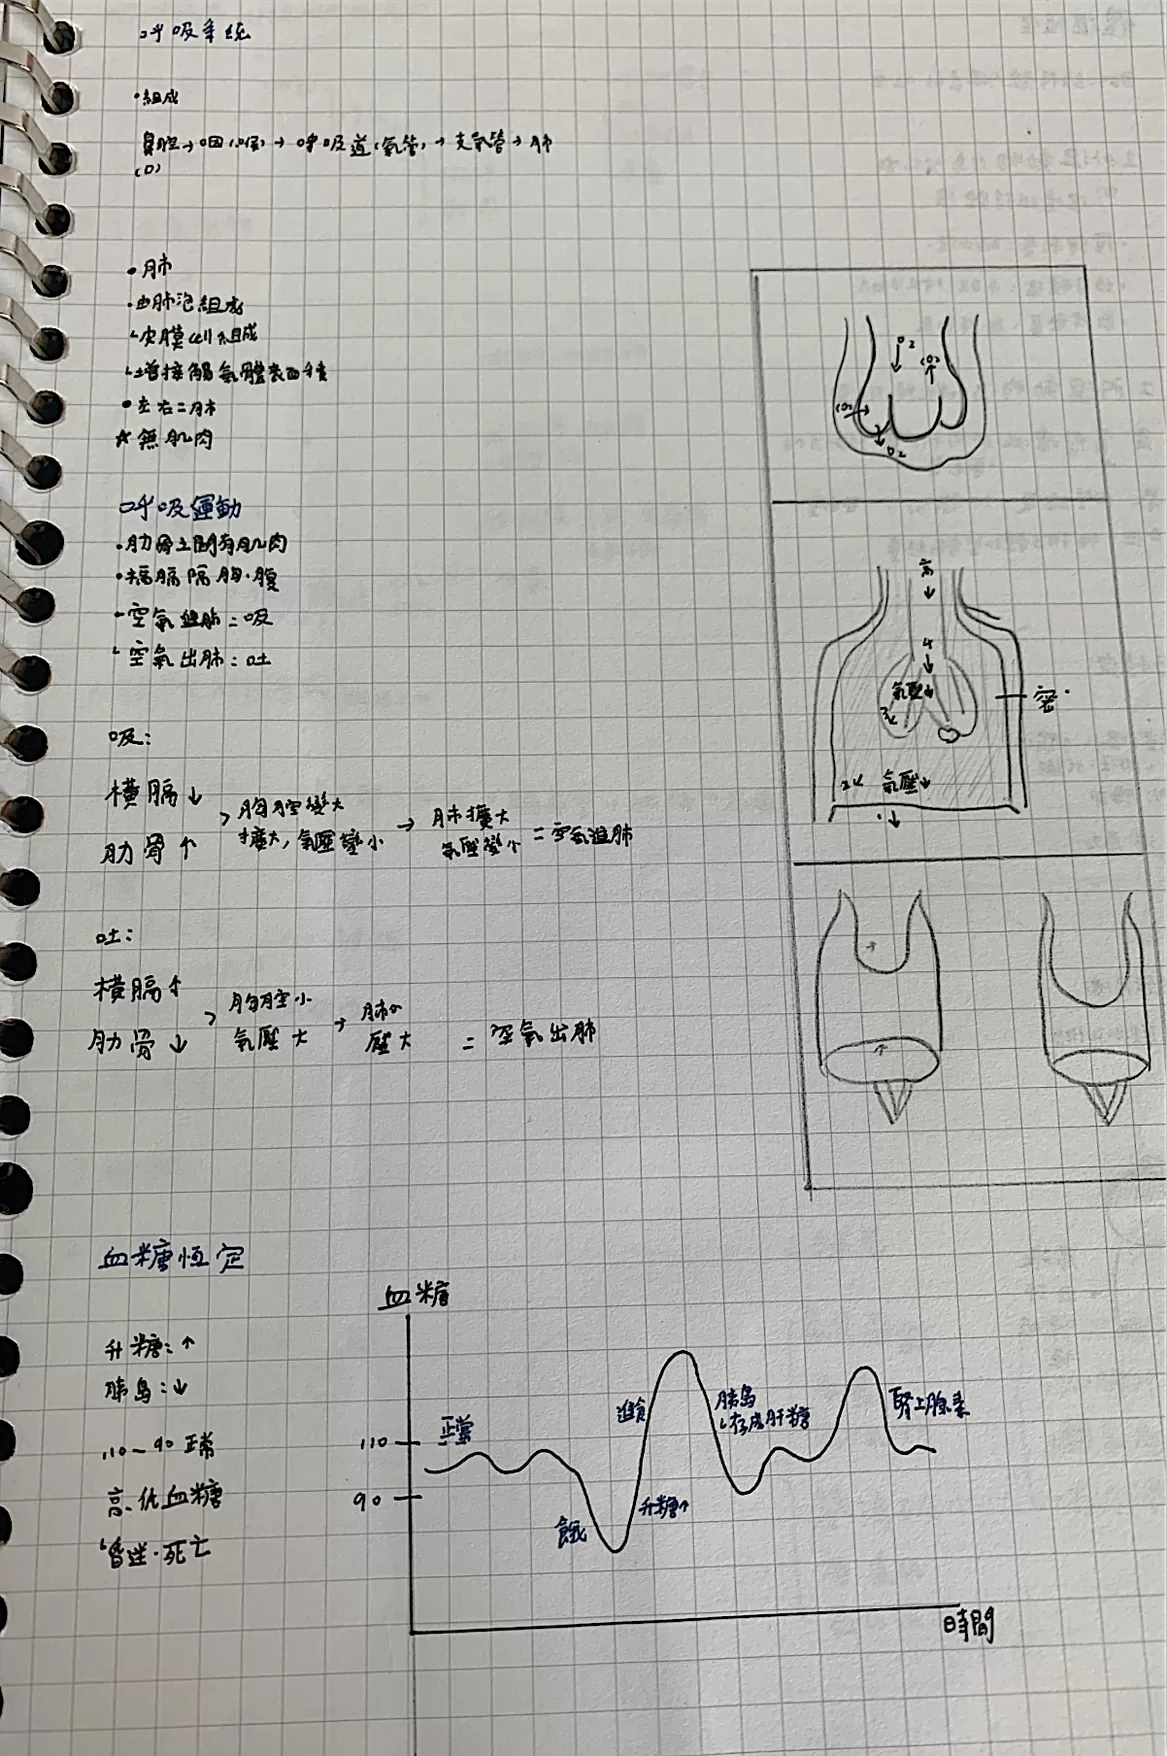 呼吸系統
·組成
鼻腔→咽(喉)→呼吸道(氣管)→支氣管→肺
(口)
•肺
·由肺泡組成
└皮膜cell組成
└增接觸氣體表面積
•左右二肺
☆無肌肉
呼吸運動
·肋骨之間有肌肉
·橫膈隔胸·腹
-空氣進肺=吸
└空氣出肺:吐
吸:
橫膈↓
肋骨↑
>胸腔變大
擴大,氣壓變小
→肺擴大
氣壓變小
=空氣進肺
吐:
橫膈↑
肋骨↓
>胸腔小
氣壓大
→肺小
壓大
=空氣出肺
O2
CO2
CO2
O2
高
4
氣壓↓
3
密·
2
氣壓↓
血糖恆定
升糖:↑
胰島:↓
110-90正常
高·低血糖
└昏迷·死亡
血糖
110
90
正常
餓
進食
升糖↑
胰島
└存成肝糖
腎上腺素
時間